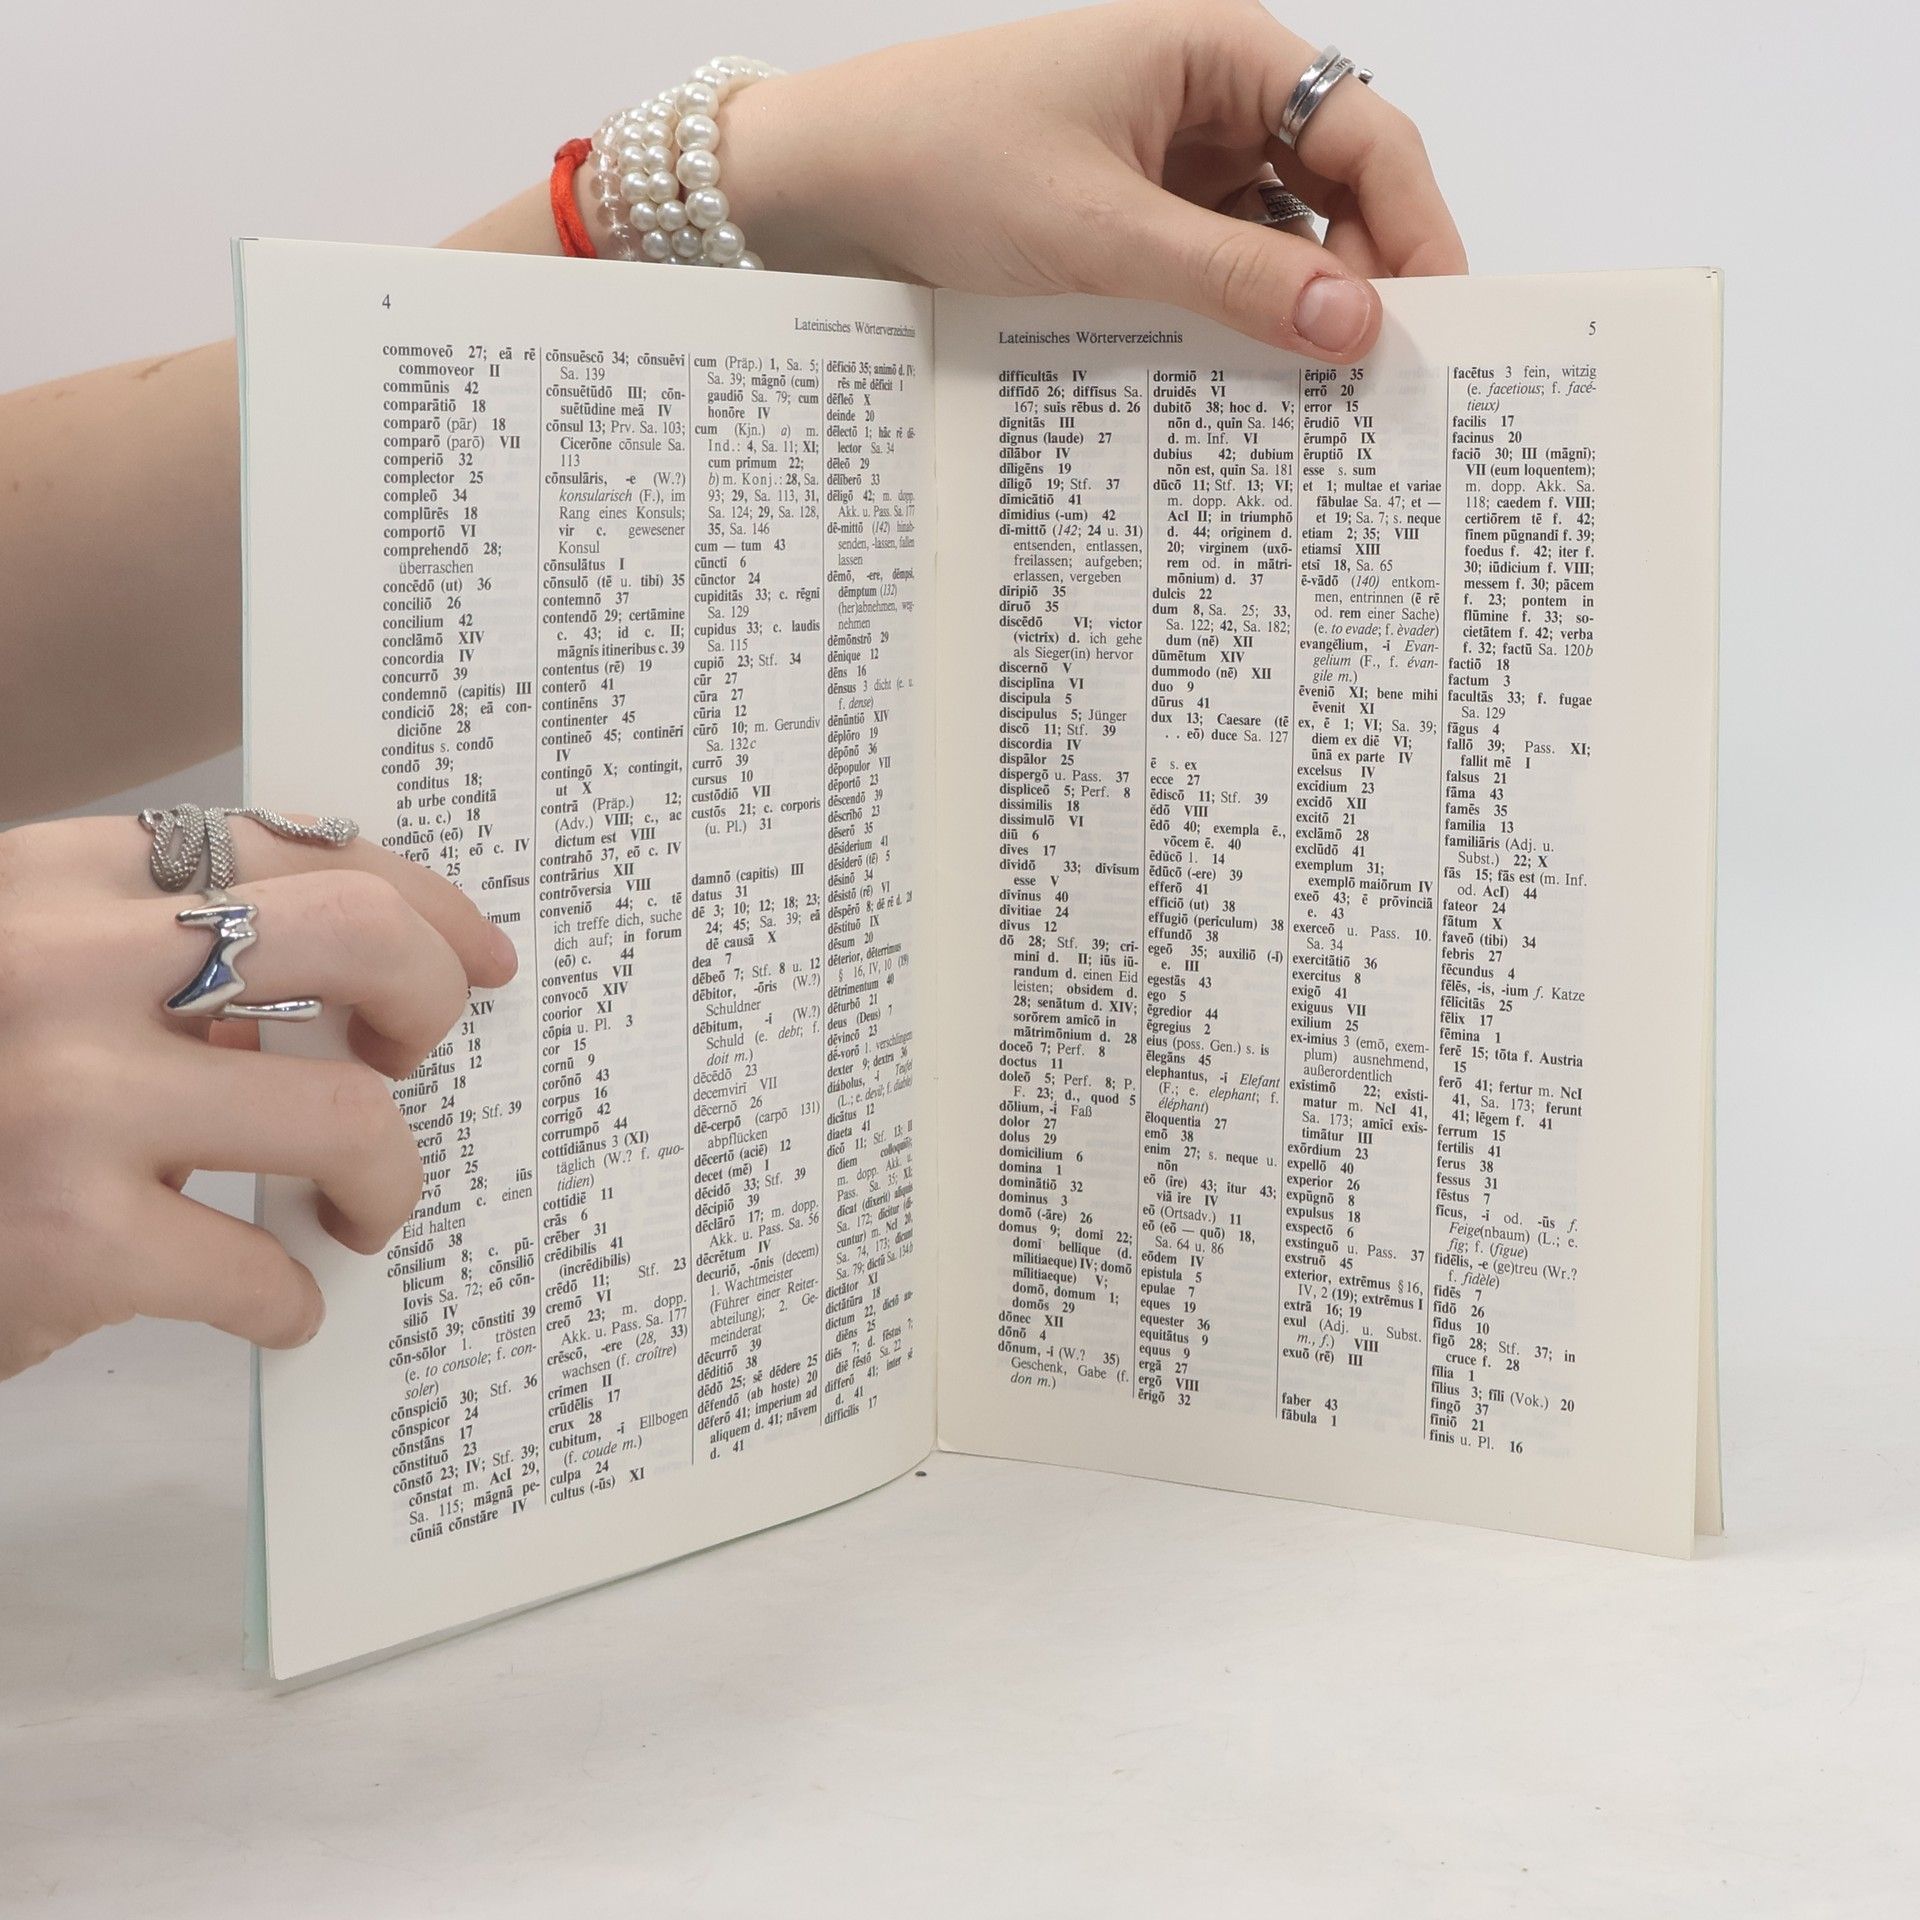 4
Lateinisches Wörterverzeichnis
commoveō 27; eā rē
commoveor II
commūnis 42
comparātiō 18
comparō (pār) 18
comparō (parō) VII
comperiō 32
complector 25
compleō 34
complūrēs 18
comportō VI
comprehendō 28;
überraschen
concēdō (ut) 36
conciliō 26
concilium 42
conclāmō XIV
concordia IV
concurrō 39
condemnō (capitis) III
condiciō 28; eā con-
diciōne 28
conditus s. condō
condō 39;
conditus 18;
ab urbe conditā
(a. u. c.) 18
condūcō (eō) IV
41; eō c. IV
25
cōnfīsus
XIV
31
18
12
coniūrō 18
24
19; Stf. 39
23
22
25
28; iūs
c. einen
Eid halten
cōnsīdō 38
cōnsilium 8; c. pū-
blicum 8; cōnsiliō
Iovis Sa. 72; eō cōn-
siliō IV
cōnsistō 39; cōnstitī 39
cōn-sōlor 1. trösten
(e. to console; f. con-
soler)
cōnspiciō 30; Stf. 36
cōnspicor 24
cōnstāns 17
cōnstituō 23
cōnstō 23; IV; Stf. 39;
cōnstat m. AcI 29,
Sa. 115; māgnā pe-
cūniā cōnstāre IV
cōnsuēscō 34; cōnsuēvī
Sa. 139
cōnsuētūdō III; cōn-
suētūdine meā IV
cōnsul 13; Prv. Sa. 103;
Cicerōne cōnsule Sa.
113
cōnsulāris, -e (W.?)
konsularisch (F.), im
Rang eines Konsuls;
vir c. gewesener
Konsul
cōnsulātus I
cōnsulō (tē u. tibi) 35
contemnō 37
contendō 29; certāmine
c. 43; id c. II;
māgnis itineribus c. 39
contentus (rē) 19
conterō 41
continēns 37
continenter 45
contineō 45; continērī
IV
contingō X; contingit,
ut X
contrā (Präp.) 12;
(Adv.) VIII; c., ac
dictum est VIII
contrahō 37, eō c. IV
contrārius XII
contrōversia VIII
conveniō 44; c. tē
ich treffe dich, suche
dich auf; in forum
(eō) c. 44
conventus VII
convocō XIV
coorior XI
cōpia u. Pl. 3
cor 15
cornū 9
corōnō 43
corpus 16
corrigō 42
corrumpō 44
cottidiānus 3 (XI)
täglich (W.? f. quo-
tidien)
cottidiē 11
crās 6
crēber 31
crēdibilis 41
(incrēdibilis)
crēdō 11; Stf. 23
cremō VI
creō 23; m. dopp.
Akk. u. Pass. Sa. 177
crēscō, -ere (28, 33)
wachsen (f. croître)
crimen II
crūdēlis 17
crux 28
cubitum, -ī Ellbogen
(f. coude m.)
culpa 24
cultus (-ūs) XI
cum (Präp.) 1, Sa. 5;
Sa. 39; māgnō (cum)
gaudiō Sa. 79; cum
honōre IV
cum (Kjn.) a) m.
Ind.: 4, Sa. 11; XI;
cum primum 22;
b) m. Konj.: 28, Sa.
93; 29, Sa. 113, 31,
Sa. 124; 29, Sa. 128,
35, Sa. 146
cum — tum 43
cūncti 6
cūnctor 24
cupiditās 33; c. rēgni
Sa. 129
cupidus 33; c. laudis
Sa. 115
cupiō 23; Stf. 34
cūr 27
cūra 27
cūria 12
cūrō 10; m. Gerundiv
Sa. 132c
currō 39
cursus 10
custōdiō VII
custōs 21; c. corporis
(u. Pl.) 31
damnō (capitis) III
datus 31
dē 3; 10; 12; 18; 23;
24; 45; Sa. 39; eā
dē causā X
dea 7
dēbeō 7; Stf. 8 u. 12
dēbitor, -ōris (W.?)
Schuldner
dēbitum, -ī (W.?)
Schuld (e. debt; f.
doit m.)
dēcēdō 23
decemvirī VII
dēcernō 26
dē-cerpō (carpō 131)
abpflücken
dēcertō (aciē) 12
decet (mē) I
dēcidō 33; Stf. 39
dēcipiō 39
dēclārō 17; m. dopp.
Akk. u. Pass. Sa. 56
dēcrētum IV
decuriō, -ōnis (decem)
1. Wachtmeister
(Führer einer Reiter-
abteilung); 2. Ge-
meinderat
dēcurrō 39
dēditiō 38
dēdō 25; sē dēdere 25
dēfendō (ab hoste) 20
dēferō 41; imperium ad
aliquem d. 41; nāvem
d. 41
dēficiō 35; animō d. IV;
rēs mē dēficit I
dēfleō X
deinde 20
dēlectō 1; hāc rē dē-
lector Sa. 34
dēleō 29
dēlīberō 33
dēligō 42; m. dopp.
Akk. u. Pass. Sa. 177
dē-mittō (142) hinab-
senden, -lassen, fallen
lassen
dēmō, -ere, dēmpsī,
dēmptum (132)
(her)abnehmen, weg-
nehmen
dēmōnstrō 29
dēnique 12
dēns 16
dēnsus 3 dicht (e. u.
f. dense)
dēnūntiō XIV
dēplōrō 19
dēpōnō 36
dēpopulor VII
dēportō 23
dēscendō 39
dēscrībō 23
dēserō 35
dēsiderium 41
dēsiderō (tē) 5
dēsinō 34
dēsistō (rē) VI
dēspērō 8; dē rē d. 28
dēstituō IX
dēsum 20
dēterior, dēterrimus
§ 16, IV, 10 (19)
dētrimentum 40
dēturbō 21
deus (Deus) 7
dēvincō 23
dē-vorō 1. verschlingen
dexter 9; dextra 36
diabolus, -ī Teufel
(L.; e. devil; f. diable)
dicātus 12
diaeta 41
dicō 11; Stf. 13; II
diem colloquiō;
m. dopp. Akk. u.
Pass. Sa. 35; XI;
dicat (dixerit) aliquis
Sa. 172; dīcitur (dī-
cuntur) m. NcI 20,
Sa. 74, 173; dictū
Sa. 79; dictū Sa. 134b
dictātor XI
dictātūra 18
dictum 22,
diēns 25
diēs 7; d. fēstus 7;
diē fēstō Sa. 22
differō 41; inter sē
d. 41
difficilis 17
Lateinisches Wörterverzeichnis
5
difficultās IV
diffīdō 26; diffīsus Sa.
167; suis rēbus d. 26
dignitās III
dignus (laude) 27
dīlābor IV
dīligēns 19
dīligō 19; Stf. 37
dīmicātiō 41
dīmidius (-um) 42
dī-mittō (142; 24 u. 31)
entsenden, entlassen,
freilassen; aufgeben;
erlassen, vergeben
dīripiō 35
dīruō 35
discēdō VI; victor
(victrix) d. ich gehe
als Sieger(in) hervor
discernō V
disciplīna VI
discipula 5
discipulus 5; Jünger
discō 11; Stf. 39
discordia IV
dispālor 25
dispergō u. Pass. 37
displiceō 5; Perf. 8
dissimilis 18
dissimulō VI
diū 6
dives 17
dīvidō 33; dīvisum
esse V
dīvīnus 40
dīvitiae 24
dīvus 12
dō 28; Stf. 39; cri-
mini d. II; iūs iū-
randum d. einen Eid
leisten; obsidem d.
28; senātum d. XIV;
sorōrem amicō in
mātrimōnium d. 28
doceō 7; Perf. 8
doctus 11
doleō 5; Perf. 8; P.
F. 23; d., quod 5
dōlium, -ī Faß
dolor 27
dolus 29
domicilium 6
domina 1
dominātiō 32
dominus 3
domō (-āre) 26
domus 9; domī 22;
domī bellique (d.
mīlitiaeque) IV; domō
mīlitiaeque) V;
domō, domum 1;
domōs 29
dōnec XII
dōnō 4
dōnum, -ī (W.? 35)
Geschenk, Gabe (f.
don m.)
dormiō 21
druidēs VI
dubitō 38; hoc d. V;
nōn d., quin Sa. 146;
d. m. Inf. VI
dubius 42; dubium
nōn est, quin Sa. 181
dūcō 11; Stf. 13; VI;
m. dopp. Akk. od.
AcI II; in triumphō
d. 44; originem d.
20; virginem (uxō-
rem od. in mātri-
mōnium) d. 37
dulcis 22
dum 8, Sa. 25; 33,
Sa. 122; 42, Sa. 182;
dum (nē) XII
dūmētum XIV
dummodo (nē) XII
duo 9
dūrus 41
dux 13; Caesare (tē
. . eō) duce Sa. 127
ē s. ex
ecce 27
ēdiscō 11; Stf. 39
ēdō VIII
ēdō 40; exempla ē.,
vōcem ē. 40
ēducō 1. 14
ēdūcō (-ere) 39
efferō 41
efficiō (ut) 38
effugiō (periculum) 38
effundō 38
egeō 35; auxiliō (-ī)
e. III
egestās 43
ego 5
ēgredior 44
ēgregius 2
eius (poss. Gen.) s. is
ēlegāns 45
elephantus, -ī Elefant
(F.; e. elephant; f.
éléphant)
ēloquentia 27
emō 38
enim 27; s. neque u.
nōn
eō (īre) 43; ītur 43;
viā īre IV
eō (Ortsadv.) 11
eō (eō — quō) 18,
Sa. 64 u. 86
eōdem IV
epistula 5
epulae 7
eques 19
equester 36
equitātus 9
equus 9
ergā 27
ergō VIII
ērigō 32
ēripiō 35
errō 20
error 15
ērudiō VII
ērumpō IX
ēruptiō IX
esse s. sum
et 1; multae et variae
fābulae Sa. 47; et —
et 19; Sa. 7; s. neque
etiam 2; 35; VIII
etiamsī XIII
etsi 18, Sa. 65
ē-vādō (140) entkom-
men, entrinnen (ē rē
od. rem einer Sache)
(e. to evade; f. évader)
evangēlium, -ī Evan-
gelium (F., f. évan-
gile m.)
ēveniō XI; bene mihi
ēvenit XI
ex, ē 1; VI; Sa. 39;
diem ex diē VI;
ūnā ex parte IV
excelsus IV
excidium 23
excidō XII
excitō 21
exclāmō 28
exclūdō 41
exemplum 31;
exemplō maiōrum IV
exeō 43; ē prōvinciā
e. 43
exerceō u. Pass. 10.
Sa. 34
exercitātiō 36
exercitus 8
exigō 41
exiguus VII
exilium 25
ex-imius 3 (emō, exem-
plum) ausnehmend,
außerordentlich
existimō 22; existi-
matur m. NcI 41,
Sa. 173; amici exis-
timātur III
exōrdium 23
expellō 40
experior 26
expūgnō 8
expulsus 18
exspectō 6
exstinguō u. Pass. 37
exstruō 45
exterior, extrēmus § 16,
IV, 2 (19); extrēmus I
extrā 16; 19
exul (Adj. u. Subst.
m., f.) VIII
exuō (rē) III
faber 43
fābula 1
facētus 3 fein, witzig
(e. facetious; f. facé-
tieux)
facilis 17
facinus 20
faciō 30; III (māgnī);
VII (eum loquentem);
m. dopp. Akk. Sa.
118; caedem f. VIII;
certiōrem tē f. 42;
finem pūgnandī f. 39;
foedus f. 42; iter f.
30; iūdicium f. VIII;
messem f. 30; pācem
f. 23; pontem in
flūmine f. 33; so-
cietātem f. 42; verba
f. 32; factū Sa. 120b
factiō 18
factum 3
facultās 33; f. fugae
Sa. 129
fāgus 4
fallō 39; Pass. XI;
fallit mē I
falsus 21
fāma 43
famēs 35
familia 13
familiāris (Adj. u.
Subst.) 22; X
fās 15; fās est (m. Inf.
od. AcI) 44
fateor 24
fātum X
faveō (tibi) 34
febris 27
fēcundus 4
fēlēs, -is, -ium f. Katze
fēlicitās 25
fēlix 17
fēmina 1
ferē 15; tōta f. Austria
15
ferō 41; fertur m. NcI
41, Sa. 173; ferunt
41; lēgem f. 41
ferrum 15
fertilis 41
ferus 38
fessus 31
fēstus 7
ficus, -ī od. -ūs f.
Feige(nbaum) (L.; e.
fig; f. (figue)
fidēlis, -e (ge)treu (Wr.?
f. fidèle)
fidēs 7
fidō 26
fidus 10
figō 28; Stf. 37; in
cruce f. 28
filia 1
filius 3; filī (Vok.) 20
fingō 37
finiō 21
finis u. Pl. 16